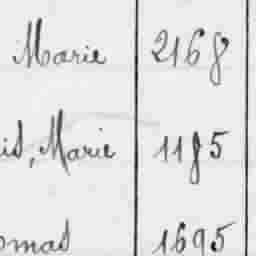 Marie 2168
is, Marie 1185
omas 1695